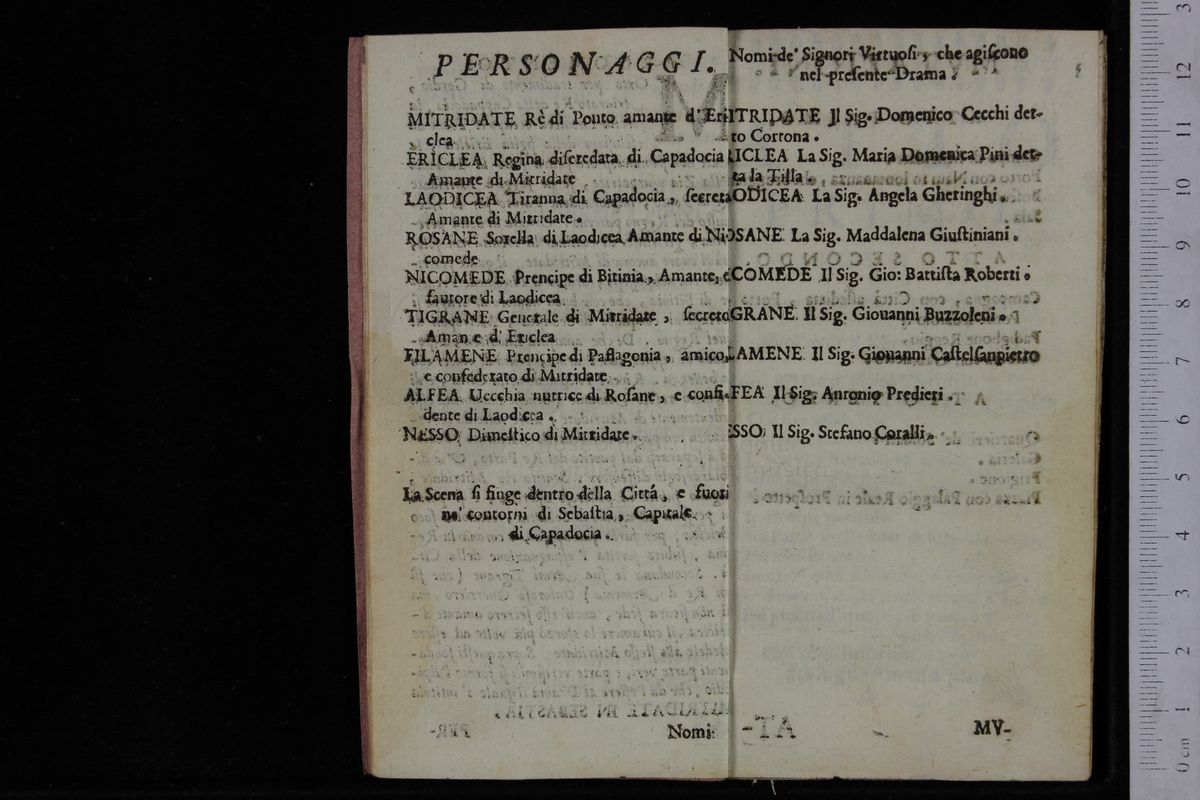 PERSONAGGI.
MITRIDATE Rè di Ponto amante d'Eri
clea
ERICLEA Regina diseredata di Capadocia
Amante di Mitridate
LAODICEA Tiranna di Capadocia, secreta
Amante di Mitridate.
ROSANE Sorella di Laodicea Amante di Ni
comede
NICOMEDE Prencipe di Bitinia, Amante, e
fautore di Laodicea
TIGRANE Generale di Mitridate, secreto
Aman e d' Ericlea
FILAMENE Prencipe di Paflagonia, amico,
e confederato di Mitridate
ALFEA Uecchia nutrice di Rosane, e confi-
dente di Laodicea.
NESSO Dimestico di Mitridate.
La Scena si finge dentro della Cittá, e fuori
ne' contorni di Sebastia, Capitale
di Capadocia.
Nomi
Nomi de' Signori Virtuosi, che agiscono
nel presente Drama.
ITRIDATE Il Sig. Domenico Cecchi det-
to Cortona.
ICLEA La Sig. Maria Domenica Pini det-
ta la Tilla.
ODICEA La Sig. Angela Gheringhi.
OSANE La Sig. Maddalena Giustiniani.
COMEDE Il Sig. Gio: Battista Roberti.
GRANE Il Sig. Giouanni Buzzoleni.
LAMENE Il Sig. Giouanni Castelsanpietro
FEA Il Sig. Antonio Predieri.
SSO Il Sig. Stefano Coralli.
MV-